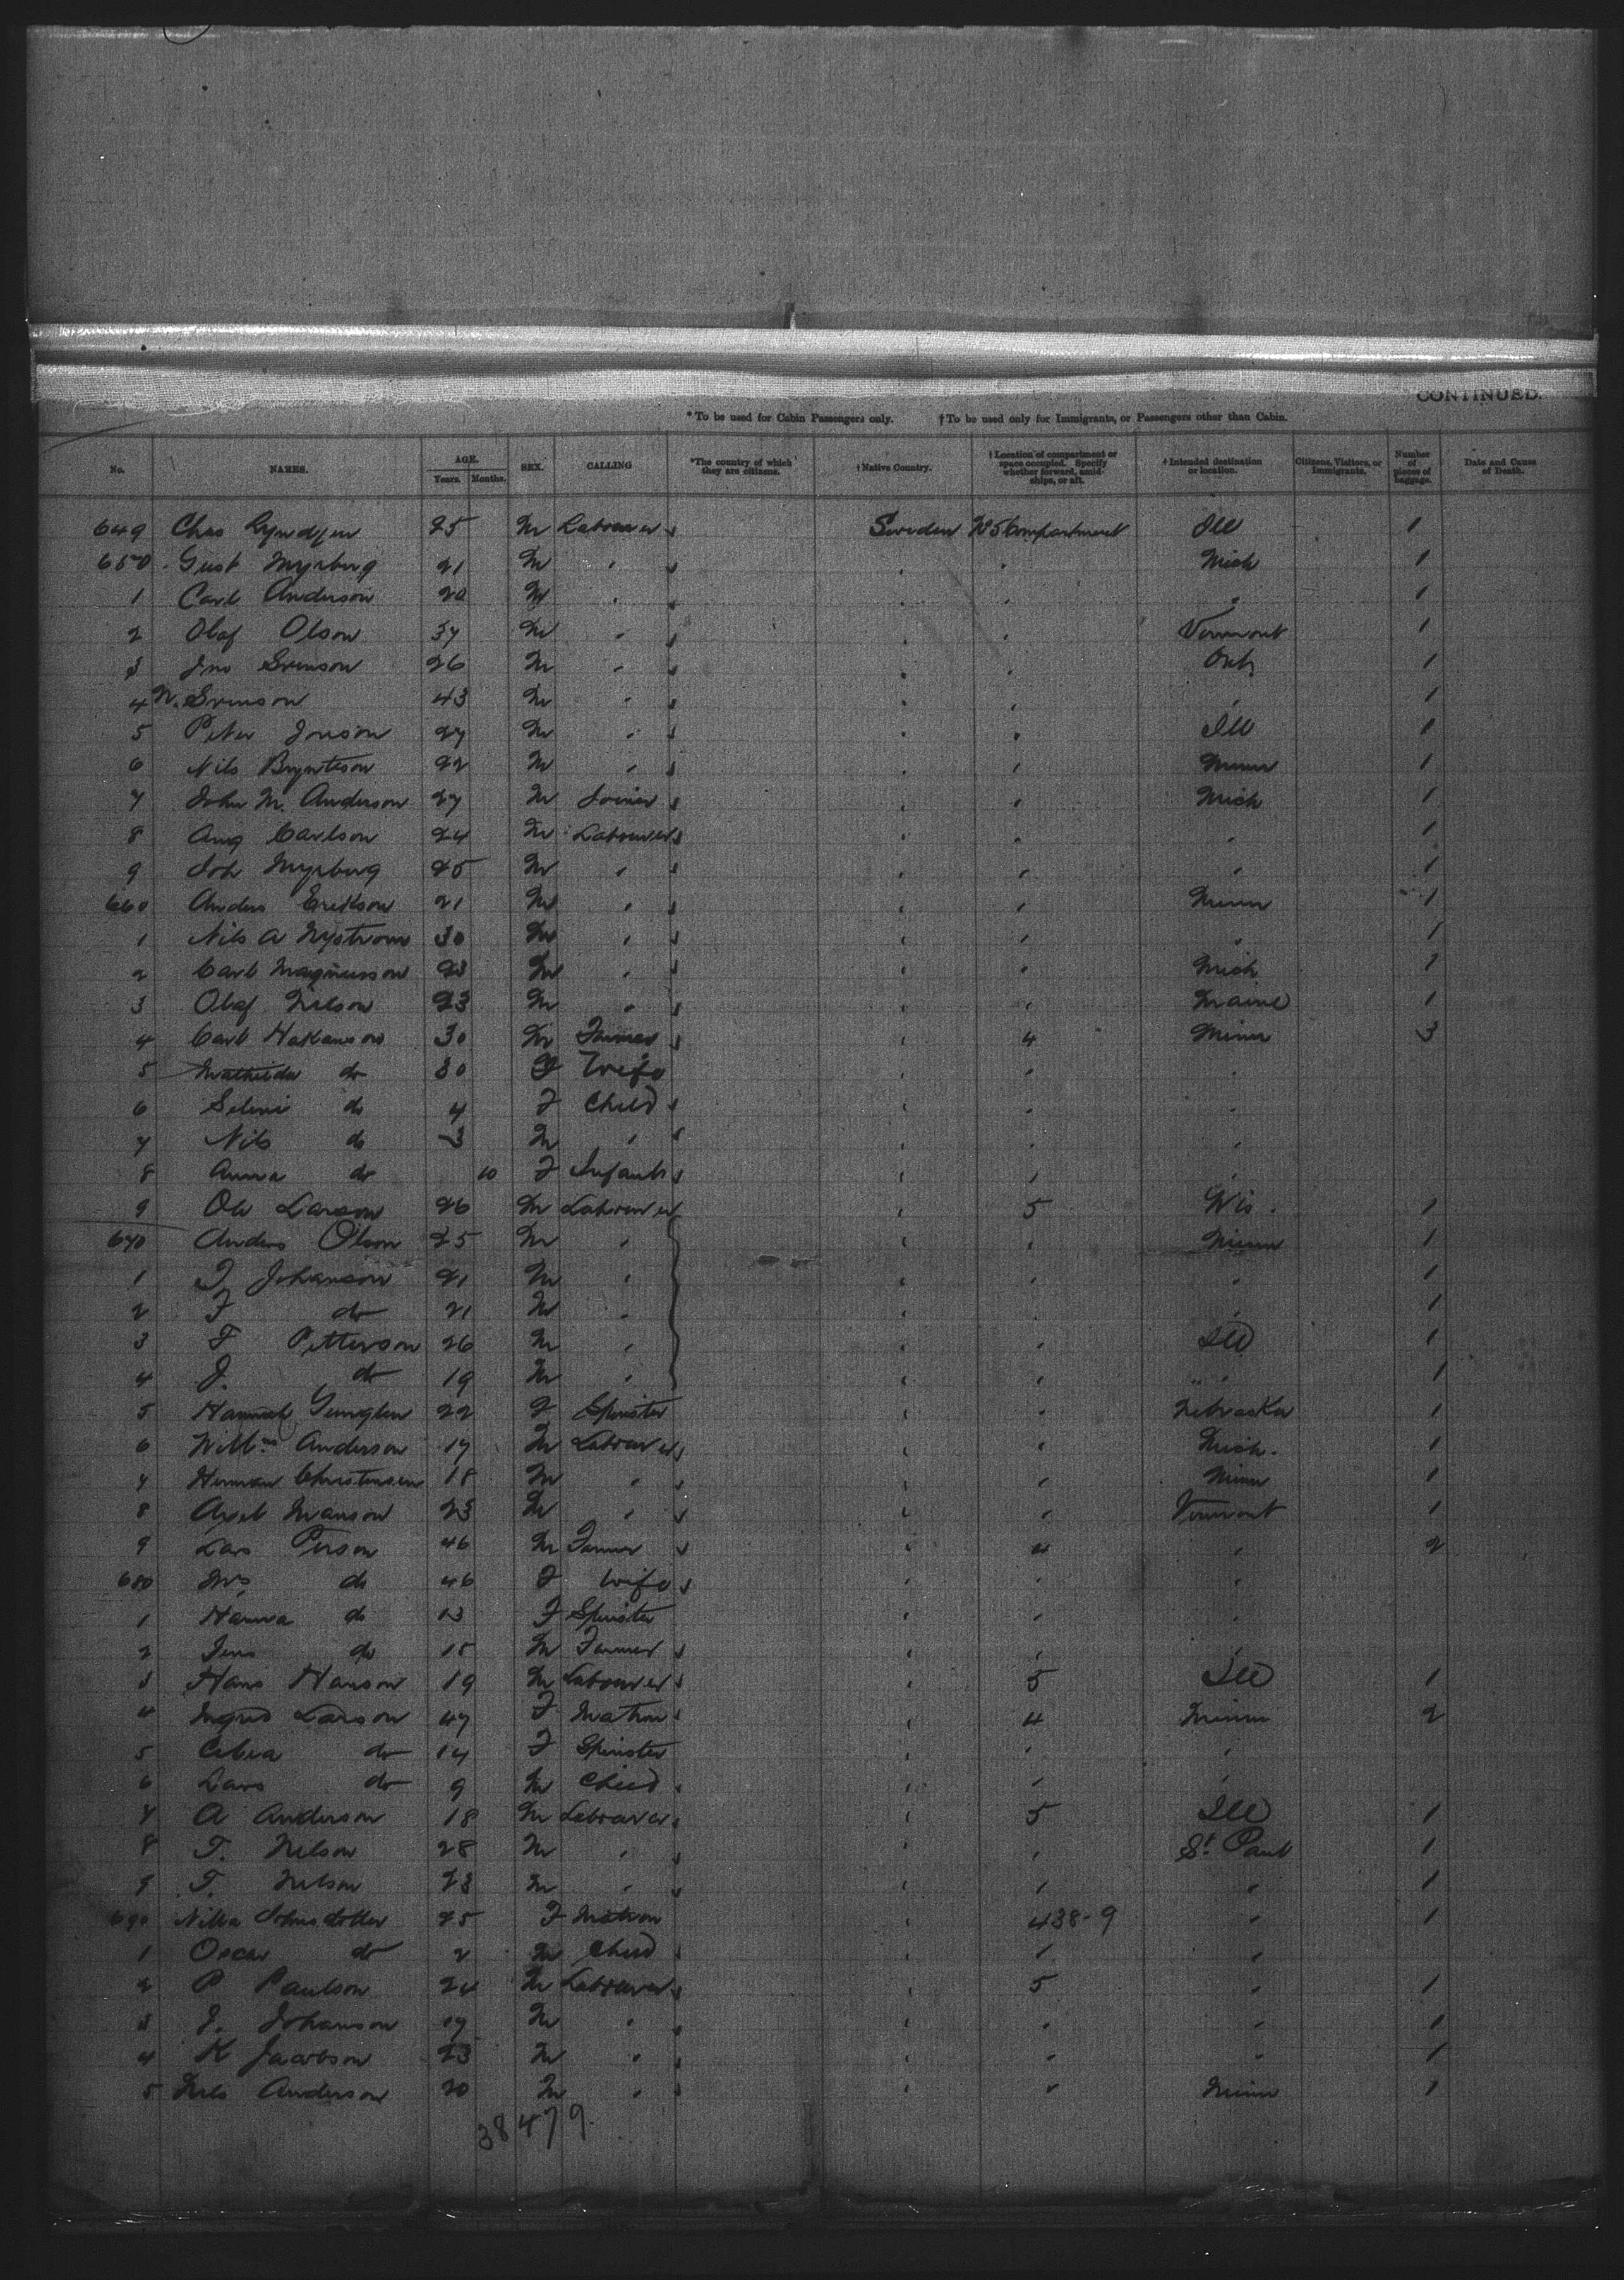 CONTINUED.
*To be used for Cabin Passengers only. †To be used only for Immigrants, or Passengers other than Cabin.
No. NAMES. AGE. Years. Months. SEX. CALLING *The country of which they are citizens. †Native Country. †Location of compartment or space occupied. Specify whether forward, amidships, or aft. †Intended destination or location. Citizens, Visitors, or Immigrants. Number of pieces of baggage. Date and Cause of Death.
649 Chas 25 M Labourer Sweden No 5 Compartment Ill 1
650 Gust Myrberg 21 M " " " Mich 1
1 Carl Anderson 20 M " " " " 1
2 Olaf Olson 37 M " " " Vermont 1
3 Jno Svenson 26 M " " " 1
4 N. Svenson 43 M " " " " 1
5 Peter Jonson 27 M " " " Ill 1
6 Nils Brynteson 22 M " " " Minn 1
7 John M. Anderson 27 M Joiner " " Mich 1
8 Aug Carlson 24 M Labourer " " " 1
9 Joh Myrberg 25 M " " " " 1
660 Anders Erikson 21 M " " " Minn 1
1 Nils A Nystrom 30 M " " " " 1
2 Carl Magnusson 23 M " " " Mich 1
3 Olaf Nelson 23 M " " " Maine 1
4 Carl Hakanson 30 M Farmer " 4 Minn 3
5 Mathilda do 30 F Wife " " "
6 Selini do 4 F Child " " "
7 Nils do 3 M " " " "
8 Anna do 10 F Infant " " "
9 Ole Larson 26 M Labourer " 5 Wis. 1
670 Anders Olson 25 M " " " Minn 1
1 J Johanson 21 M " " " " 1
2 F do 21 M " " " " 1
3 F Petterson 26 M " " " Ill 1
4 J. do 19 M " " " " 1
5 Hannah 22 F Spinster " " Nebraska 1
6 Willm Anderson 17 M Labourer " " Mich. 1
7 Herman Christensen 18 M " " " Minn 1
8 Axel Manson 23 M " " " Vermont 1
9 Lars Person 46 M Farmer " 4 " 2
680 Mrs do 46 F Wife " " "
1 Hanna do 13 F Spinster " " "
2 Jens do 15 M Farmer " " "
3 Hans Hanson 19 M Labourer " 5 Ill 1
4 Ingrid Larson 47 F Matron " 4 Minn 2
5 do 14 F Spinster " " "
6 Lars do 9 M Child " " "
7 A Anderson 18 M Labourer " 5 Ill 1
8 T. Nelson 28 M " " " St. Paul 1
9 T. Nelson 23 M " " " " 1
690 Nilla Johnsdotter 25 F Matron " 438-9 " 1
1 Oscar do 2 M Child " " "
2 P Paulson 24 M Labourer " 5 " 1
3 J. Johanson 19 M " " " " 1
4 K Jacobson 23 M " " " " 1
5 Nels Anderson 20 M " " " Minn 1
38479